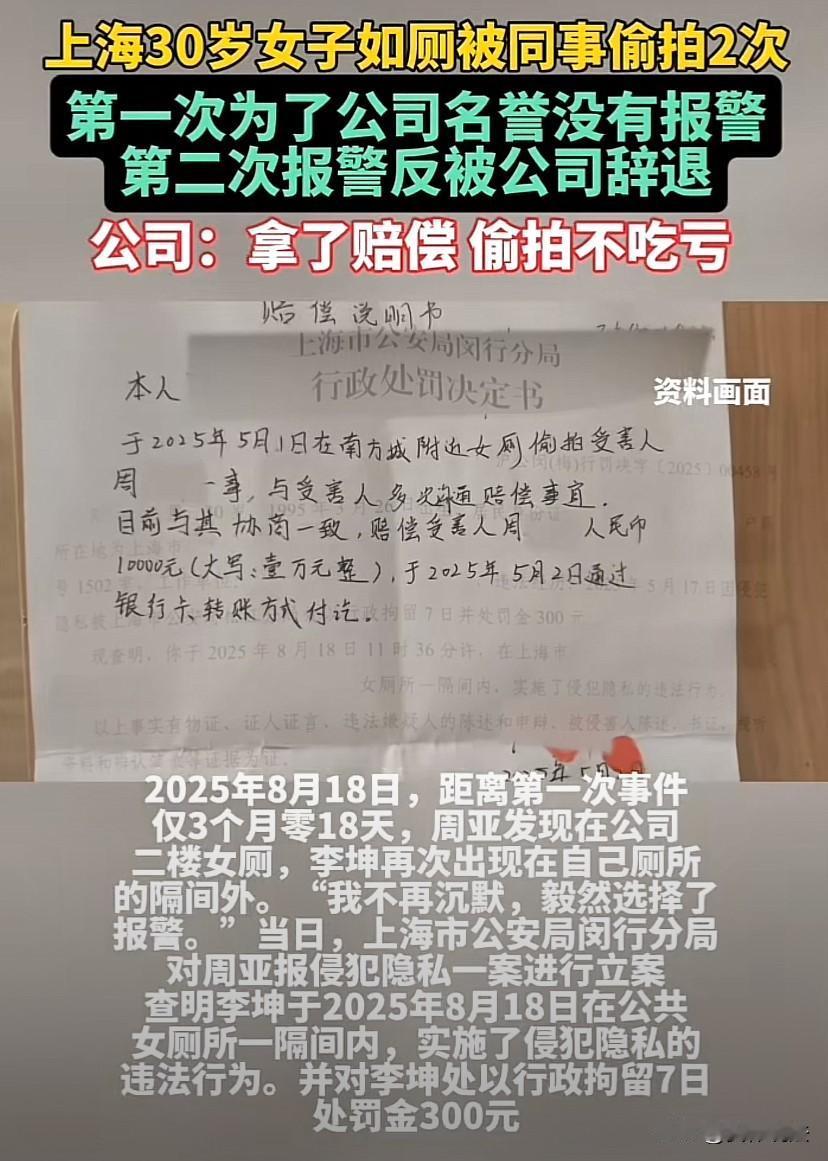 上海30岁女子如厕被同事偷拍2次
第一次为了公司名誉没有报警
第二次报警反被公司辞退
公司：拿了赔偿 偷拍不吃亏
赔偿说明书
上海市公安局闵行分局
行政处罚决定书
资料画面
本人
于2025年5月1日在南方城附近女厕偷拍受害人
沪公闵(梅)行罚决字〔2025〕00458号
周 一事，与受害人多次沟通赔偿事宜.
1995年3月26日
目前与其协商一致，赔偿受害人周 人民币
所在地为上海市
10000元(大写:壹万元整)，于2025年5月2日通过
号1502室，工作单位
违法经历：2025年5月17日因侵犯
银行卡转账方式付讫.
隐私被上海市公安 行政拘留7日并处罚金300元
现查明，你于2025年8月18日11时36分许，在上海市
女厕所一隔间内，实施了侵犯隐私的违法行为。
以上事实有物证、证人证言、违法嫌疑人的陈述和申辩、被侵害人陈述、书证、视听
资料和辨认笔录等证据为证.
2025年5月
2025年8月18日，距离第一次事件
仅3个月零18天，周亚发现在公司
二楼女厕，李坤再次出现在自己厕所
的隔间外。“我不再沉默，毅然选择了
报警。”当日，上海市公安局闵行分局
对周亚报侵犯隐私一案进行立案
查明李坤于2025年8月18日在公共
女厕所一隔间内，实施了侵犯隐私的
违法行为。并对李坤处以行政拘留7日
处罚金300元